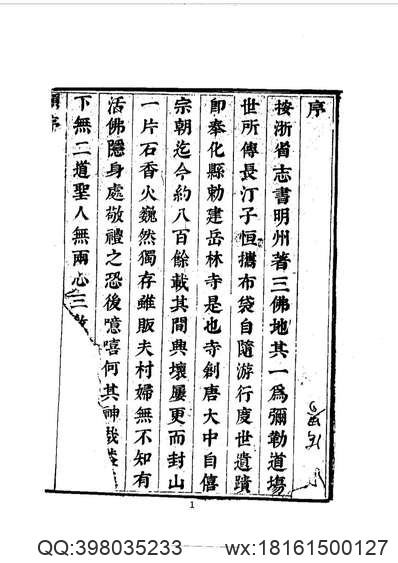 序
按浙省志書明州著三佛地其一爲彌勒道塲
世所傳長汀子恒攜布袋自隨游行度世遺蹟
卽奉化縣勅建岳林寺是也寺創唐大中自僖
宗朝迄今約八百餘載其間興壞屢更而封山
一片石香火巍然獨存雖販夫村婦無不知有
活佛隱身處敬禮之恐後噫嘻何其神哉
下無二道聖人無兩心三
序
1
QQ:398035233 wx:18161500127